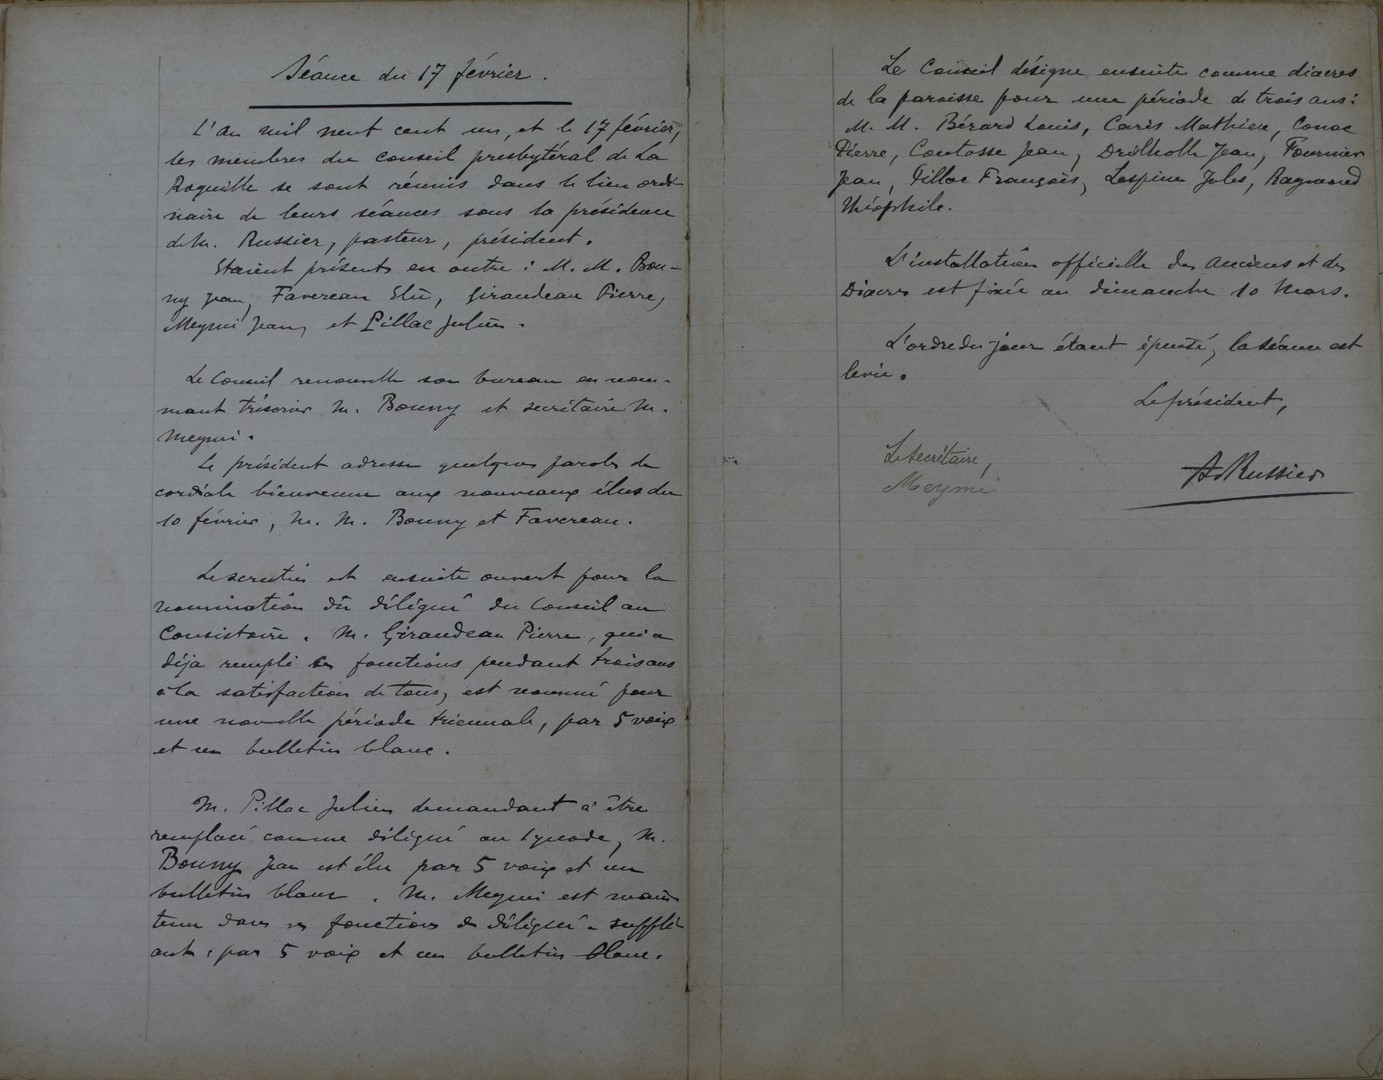 Séance du 17 février.
L'an mil neuf cent un, et le 17 février,
les membres du conseil presbytéral de La
Roquille se sont réunis dans le lieu ordi-
naire de leurs séances sous la présidence
de M. Russier, pasteur, président.
Etaient présents en outre : M. M. Bou-
ny Jean, Favereau Elie, Girandeau Pierre,
Meymé Jean, et Pillac Julien.
Le Conseil renouvelle son bureau en nom-
mant trésorier M. Bouny et secrétaire M.
Meymé.
Le président adresse quelques paroles de
cordiale bienvenue aux nouveaux élus du
10 février, M. M. Bouny et Favereau.
Le scrutin est ensuite ouvert pour la
nomination du délégué du Conseil au
Consistoire. M. Girandeau Pierre, qui a
déjà rempli ces fonctions pendant trois ans
à la satisfaction de tous, est nommé pour
une nouvelle période triennale, par 5 voix
et un bulletin blanc.
M. Pillac Julien demandant à être
remplacé comme délégué au synode, M.
Bouny Jean est élu par 5 voix et un
bulletin blanc. M. Meymé est main-
tenu dans ses fonctions de délégué-supplé-
ant, par 5 voix et un bulletin blanc.
Le Conseil désigne ensuite comme diacres
de la paroisse pour une période de trois ans :
M. M. Bérard Louis, Carès Mathieu, Conac
Pierre, Coutosse Jean, Drilholle Jean, Fournier
Jean, Pillac François, Lespine Jules, Raymond
Théophile.
L'installation officielle des Anciens et des
Diacres est fixée au dimanche 10 Mars.
L'ordre du jour étant épuisé, la séance est
levée.
Le président,
Le secrétaire,
Meymé
Ad Russier